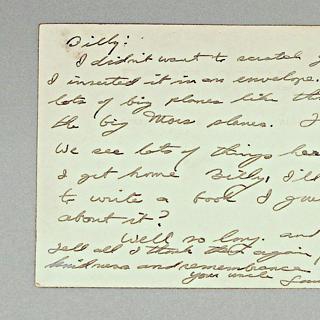 Billy:
I didn't want to scratch
I inserted it in an envelope.
lots of big planes like
the big Mars planes.
We see lots of things
I get home Billy, I'll
to write a book I
about it?
Well so long. and
tell all I think that again
kindness and remembrance
your uncle